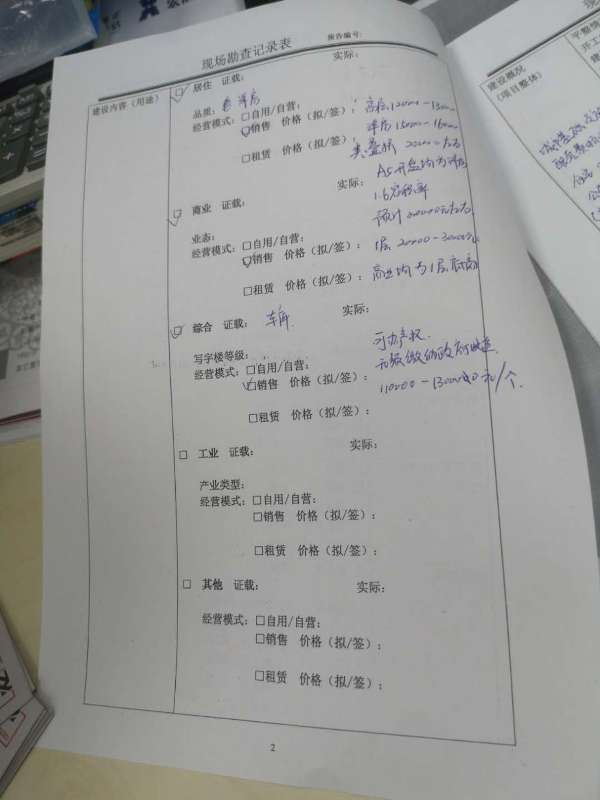 现场勘查记录表 报告编号:
建设内容(用途)
☑ 居住 证载: 实际:
品质: 洋房
经营模式: □自用/自营:
☑销售 价格(拟/签): 高层12000-13000
洋房15000-16000
□租赁 价格(拟/签): 类叠拼 20000元左右
☑ 商业 证载: 实际:
1.6容积率
预计
业态:
经营模式: □自用/自营:
☑销售 价格(拟/签): 1层 20000-30000元
□租赁 价格(拟/签): 商业均为1层
☑ 综合 证载: 车角 实际:
可办产权
写字楼等级:
经营模式: □自用/自营:
☑销售 价格(拟/签): 110000-130000元/个
□租赁 价格(拟/签):
□ 工业 证载: 实际:
产业类型:
经营模式: □自用/自营:
□销售 价格(拟/签):
□租赁 价格(拟/签):
□ 其他 证载: 实际:
经营模式: □自用/自营:
□销售 价格(拟/签):
□租赁 价格(拟/签):
2
现
建设概况
(项目整体)
平整情
开工
建